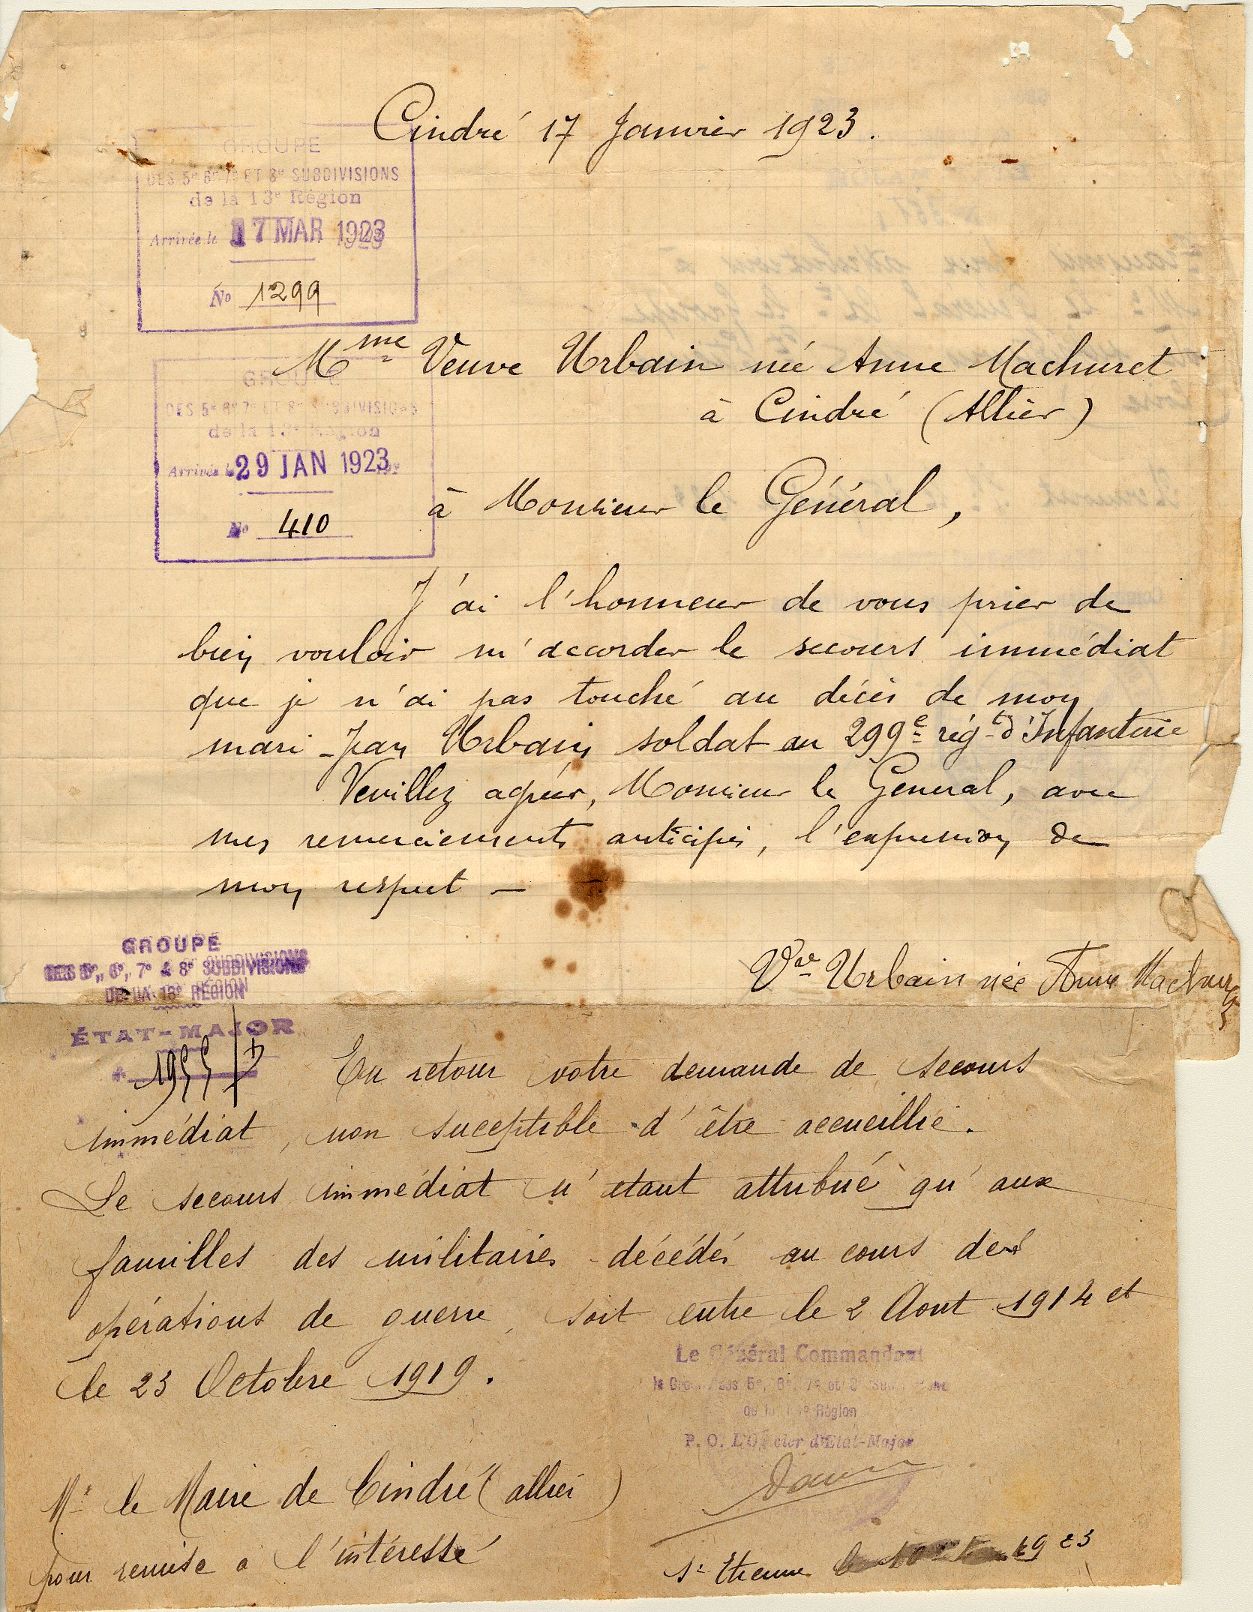 Cindré 17 Janvier 1923.
GROUPE
DES 5e 6e 7e ET 8e SUBDIVISIONS
de la 13e Région
Arrivée le 17 MAR 1923
No 1299
Mme Veuve Urbain née Anne Machuret
à Cindré (Allier)
GROUPE
DES 5e 6e 7e ET 8e SUBDIVISIONS
de la 13e Région
Arrivée le 29 JAN 1923
No 410
à Monsieur le Général,
J'ai l'honneur de vous prier de
bien vouloir m'accorder le secours immédiat
que je n'ai pas touché au décès de mon
mari Jean Urbain soldat au 299e régt d'Infanterie
Veuillez agréer, Monsieur le Général, avec
mes remerciements anticipés, l'expression de
mon respect —
Vve Urbain née Anne Machuret
GROUPE
DES 5e, 6e, 7e & 8e SUBDIVISIONS
DE LA 13e RÉGION
ÉTAT-MAJOR
En retour votre demande de secours
immédiat, non suceptible d'être accueillie.
Le secours immédiat n'étant attribué qu'aux
familles des militaires décédés au cours des
opérations de guerre, soit entre le 2 Aout 1914 et
le 23 Octobre 1919.
Le Général Commandant
le Groupe des 5e, 6e, 7e et 8e Subdivisions
de la 13e Région
P. O. L'Officier d'Etat-Major
Mr le Maire de Cindré (allier)
pour remise a l'intéressé
St Etienne le 1923